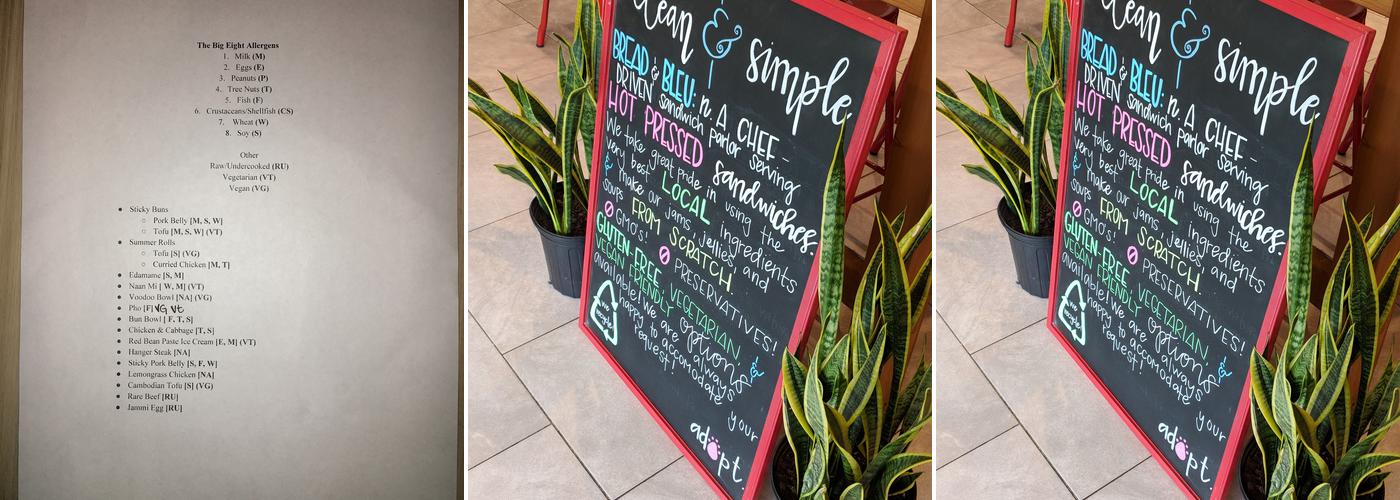 The Big Eight Allergens
1. Milk (M)
2. Eggs (E)
3. Peanuts (P)
4. Tree Nuts (T)
5. Fish (F)
6. Crustaceans/Shellfish (CS)
7. Wheat (W)
8. Soy (S)
Other
Raw/Undercooked (RU)
Vegetarian (VT)
Vegan (VG)
• Sticky Buns
○ Pork Belly [M, S, W]
○ Tofu [M, S, W] (VT)
• Summer Rolls
○ Tofu [S] (VG)
○ Curried Chicken [M, T]
• Edamame [S, M]
• Naan Mi [ W, M] (VT)
• Voodoo Bowl [NA] (VG)
• Pho [F] VG Vt
• Bun Bowl [ F, T, S]
• Chicken & Cabbage [T, S]
• Red Bean Paste Ice Cream [E, M] (VT)
• Hanger Steak [NA]
• Sticky Pork Belly [S, F, W]
• Lemongrass Chicken [NA]
• Cambodian Tofu [S] (VG)
• Rare Beef [RU]
• Jammi Egg [RU]
& simple
BREAD & BLEU: n. A CHEF-
DRIVEN sandwich parlor serving
HOT PRESSED sandwiches.
We take great pride in using the
very best LOCAL ingredients
& make our jams, jellies and
soups FROM SCRATCH.
GMO's! PRESERVATIVES!
GLUTEN-FREE, VEGETARIAN, &
VEGAN FRIENDLY options
available! We are always
happy to accomodate your
request!
we recycle!
adopt.
& simple
BREAD & BLEU: n. A CHEF-
DRIVEN sandwich parlor serving
HOT PRESSED sandwiches.
We take great pride in using the
very best LOCAL ingredients
& make our jams, jellies and
soups FROM SCRATCH.
GMO's! PRESERVATIVES!
GLUTEN-FREE, VEGETARIAN, &
VEGAN FRIENDLY options
available! We are always
happy to accomodate your
request!
we recycle!
adopt.